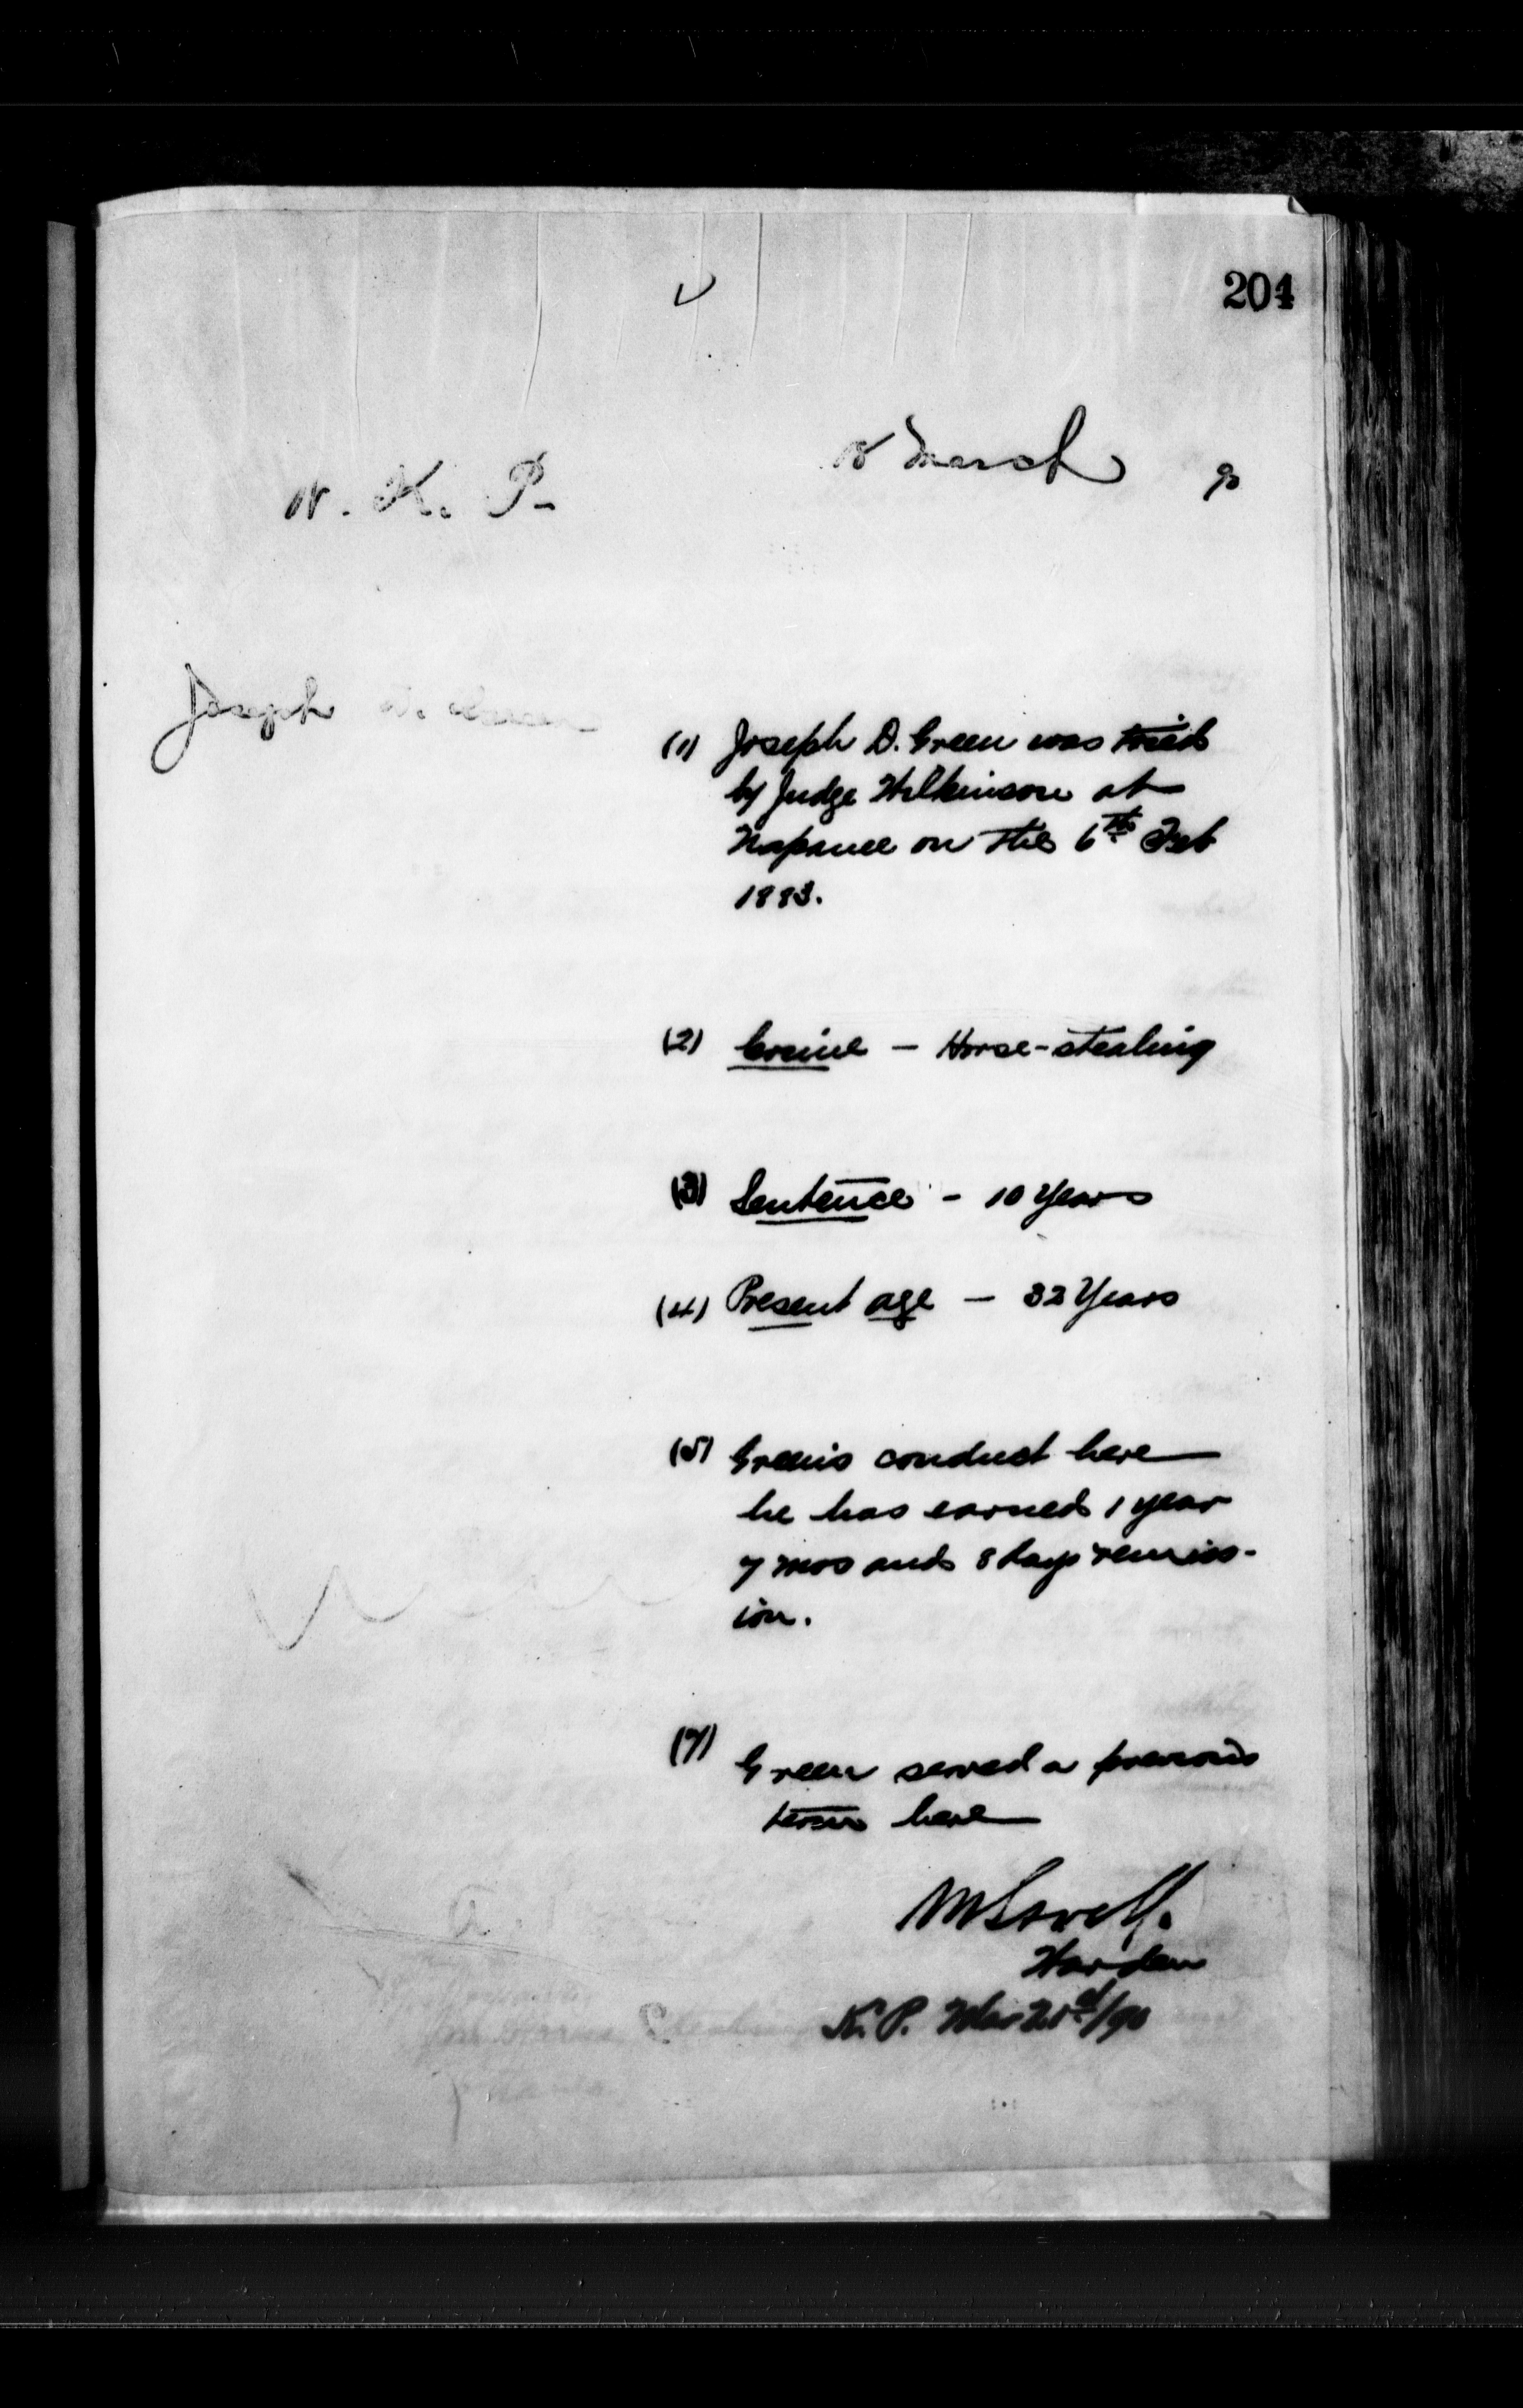 204
March 90
W. K. P.
Joseph D. Green
(1) Joseph D. Green was tried
by Judge Wilkinson at
Napanee on the 6th Feb
1883.
(2) Crime – Horse-stealing
(3) Sentence – 10 Years
(4) Present age – 32 Years
(5) Green's conduct here
he has earned 1 year
7 mos and 8 days remiss-
ion.
(7)
Green served a previous
term here
M Lavell.
Warden
K. P. Mar 21st/90